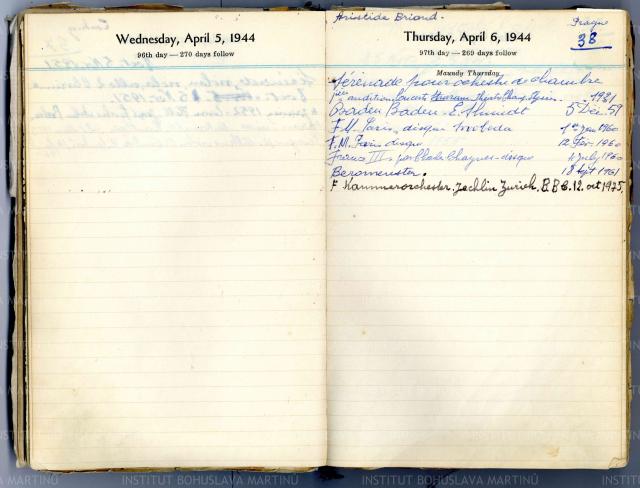 Wednesday, April 5, 1944
96th day — 270 days follow
Aristide Briand.
Prague
38
Thursday, April 6, 1944
97th day — 269 days follow
Maundy Thursday
Sérénade pour orchestre de chambre
1ère audition Concerts Théâtre Champs 1931
Baden Baden - E. Smidt 5 Déc. 59
F.M. Paris, disque Svoboda 1er Jan 1960
F.M. Paris disque 12 Fév. 1960
France III - disque 4 July 1960
Beromunster. 18 Sept 1961
F Kammerorchester. Jecklin Zurich. B.B.C. 12. oct 1975
INSTITUT BOHUSLAVA MARTINŮ